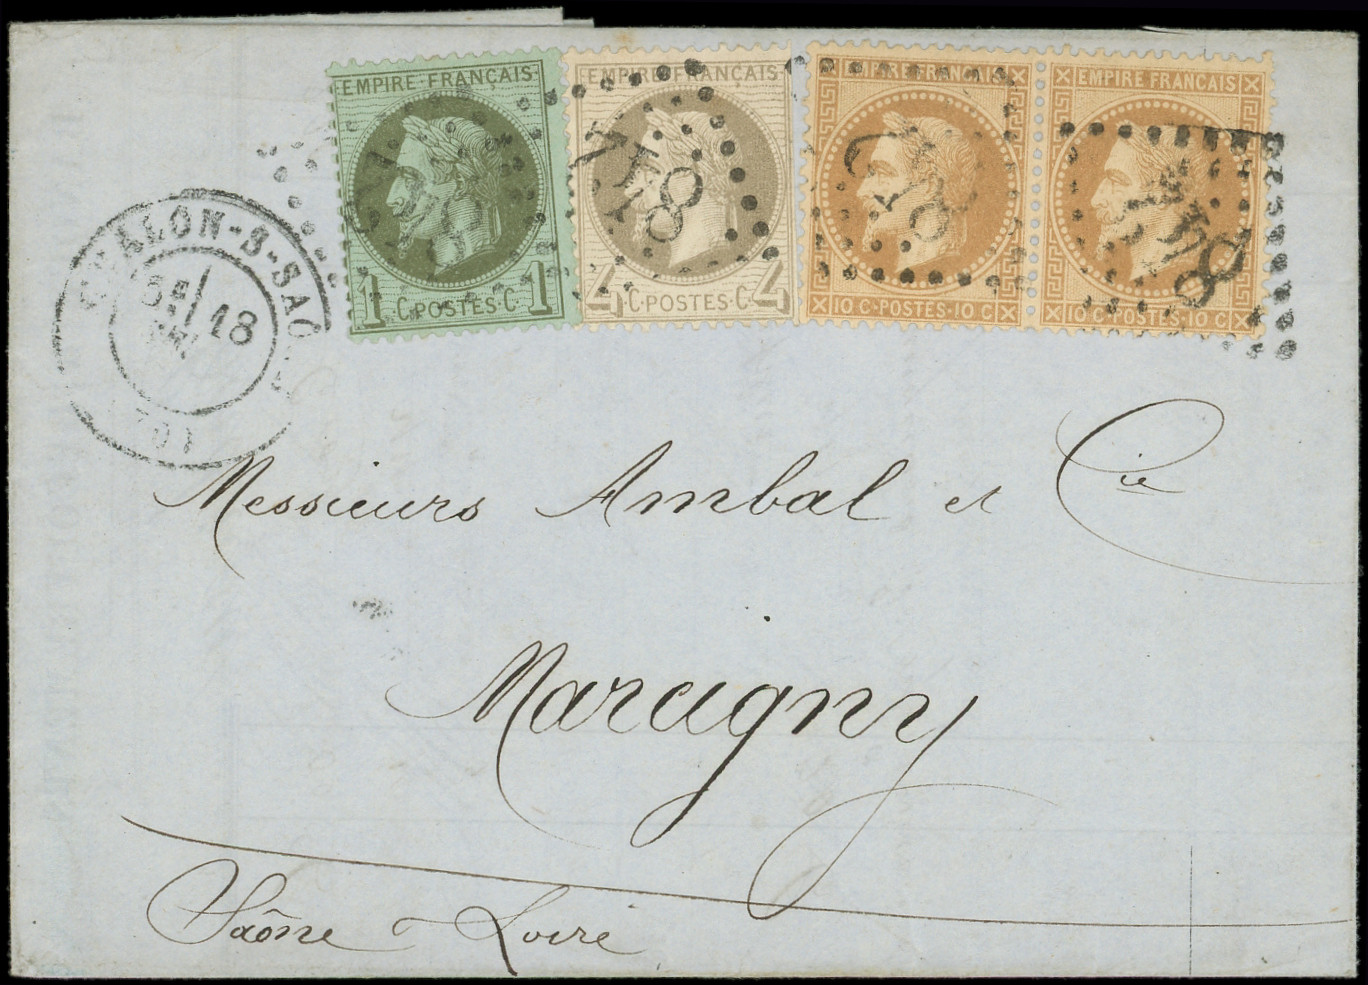 EMPIRE FRANÇAIS
1 C·POSTES·C· 1
EMPIRE FRANÇAIS
4 C·POSTES·C· 4
EMPIRE FRANÇAIS
10 C·POSTES·10 C
EMPIRE FRANÇAIS
10 C·POSTES·10 C
CHALON-S-SAÔNE
18
(70)
Messieurs Ambal et Cie
Marcigny
Saône & Loire